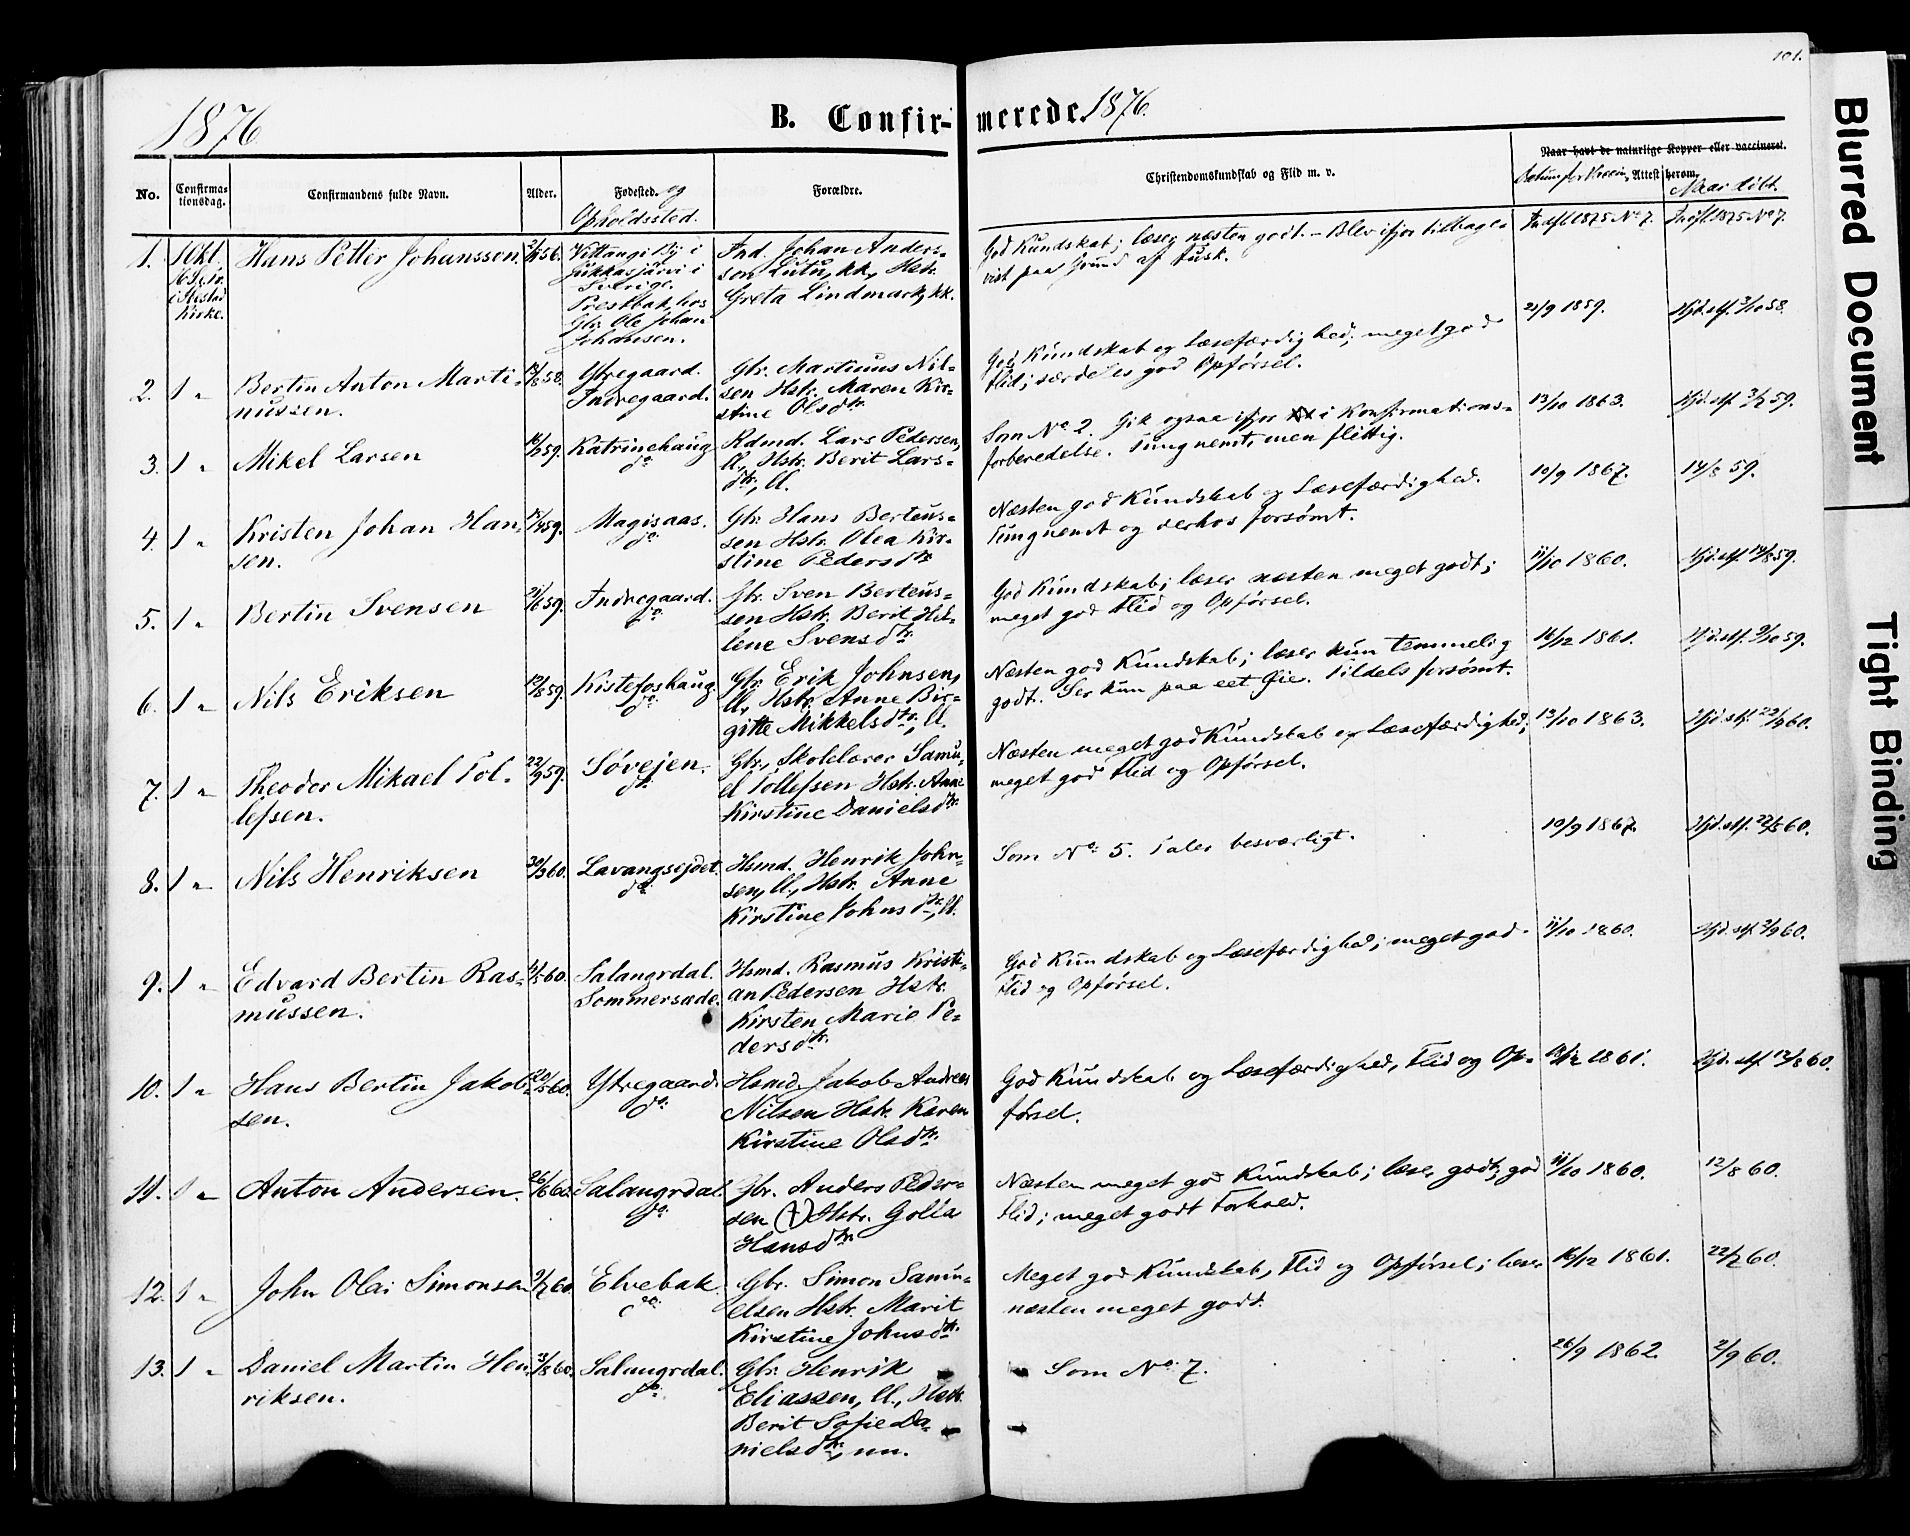 101.
1876
B. Confir-
merede.
1876.
No.
Confirma-
tionsdag.
Confirmandens fulde Navn.
Alder.
Fødested. og
Opholdssted.
Forældre.
Christendomskundskab og Flid m. v.
Naar havt de naturlige Kopper eller vaccineret.
Attest herom.
Naar døbt.
1.
1 Okt.
Kirke.
Hans Petter Johanssen.
56.
Vittangi By i
Jukkasjärvi i
Sverige.
Prestbak, hos
Gbr. Ole Johan
Johansen.
Ind. Johan Anders-
son Lutu, kk., Hstr.
Greta Lindmark, kk.
God Kundskab; læser næsten godt. – Blev ifjor tilbage-
vist paa Grund af Tusk.
Indfl. 1875 No 7.
Indfl. 1875 No 7.
2.
1 "
Bertin Anton Marti-
nussen.
58.
Ytregaard.
Indregaard.
Gbr. Martinus Nil-
sen Hstr. Maren Kir-
stine Olsdtr.
God Kundskab og Læsefærdighed; meget god
Flid; særdeles god Opførsel.
21/9 1859.
Hjd. stf. 3/10 58.
3.
1 "
Mikel Larsen
59.
Katrinehaug
do.
Rdmd. Lars Pedersen,
ll., Hstr. Berit Lars-
dtr., ll.
Som No 2. Gik ogsaa ifjor i Konfirmations-
forberedelse. Tungnemt, men flittig.
13/10 1863.
Hjd. stf. 3/7 59.
4.
1 "
Kristen Johan Han-
sen.
59.
Magisaas.
do.
Gbr. Hans Berteus-
sen Hstr. Olea Kir-
stine Pedersdtr.
Næsten god Kundskab og Læsefærdighed.
Tungnemt og derhos forsømt.
10/9 1867.
14/8 59.
5.
1 "
Bertin Svensen
59.
Indregaard.
do.
Gbr. Sven Berteus-
sen Hstr. Berit Hel-
lene Svensdtr.
God Kundskab; læser næsten meget godt;
meget god Flid og Opførsel.
11/10 1860.
Hjd. stf. 14/8 59.
6.
1 "
Nils Eriksen
12/8 59.
Kistefoshaug
do.
Gbr. Erik Johnsen,
ll., Hstr. Anne Bir-
gitte Mikkelsdtr., ll.
Næsten god Kundskab; læser kun temmelig
godt. Ser kun paa eet Øie. Tildels forsømt.
16/12 1861.
Hjd. stf. 9/10 59.
7.
1 "
Theodor Mikael Tol-
lefsen.
22/9 59.
Søvejen.
do.
Gbr., Skolelærer Samu-
el Tollefsen Hstr. Anne
Kirstine Danielsdtr.
Næsten meget god Kundskab og Læsefærdighed;
meget god Flid og Opførsel.
13/10 1863.
Hjd. stf. 60.
8.
1 "
Nils Henriksen
30/3 60.
Lavangsejdet.
do.
Hsmd. Henrik John-
sen, ll., Hstr. Anne
Kirstine Johnsdtr., ll.
Som No 5. Taler besværligt.
10/9 1867.
Hjd. stf. 22/5 60.
9.
1 "
Edvard Bertin Ras-
mussen.
60.
Salangrdal.
Sommersæde.
Hsmd. Rasmus Kristi-
an Pedersen Hstr.
Kirsten Marie Pe-
dersdtr.
God Kundskab og Læsefærdighed; meget god
Flid og Opførsel.
11/10 1860.
Hjd. stf. 2/9 60.
10.
1 "
Hans Bertin Jakob-
sen.
60.
Ytregaard.
do.
Hsmd. Jakob Andreas
Nilsen Hstr. Karen
Kirstine Olsdtr.
God Kundskab og Læsefærdighed, Flid og Op-
førsel.
1861.
Hjd. stf. 12/8 60.
11.
1 "
Anton Andersen.
26/6 60.
Salangrdal.
do.
Gbr. Anders Peder-
sen (†) Hstr. Golla
Hansdtr.
Næsten meget god Kundskab; læser godt; god
Flid; meget godt Forhold.
11/10 1860.
12/8 60.
12.
1 "
John Olai Simonsen
60.
Elvebak.
do.
Gbr. Simon Samu-
elsen Hstr. Marit
Kirstine Johnsdtr.
Meget god Kundskab, Flid og Opførsel; læser
næsten meget godt.
16/12 1861.
22/7 60.
13.
1 "
Daniel Martin Hen-
riksen.
3/8 60.
Salangrdal.
do.
Gbr. Henrik
Eliassen, ll., Hstr.
Berit Sofie Da-
nielsdtr., nn.
Som No. 7.
26/9 1862.
2/9 60.
Blurred Document
Tight Binding